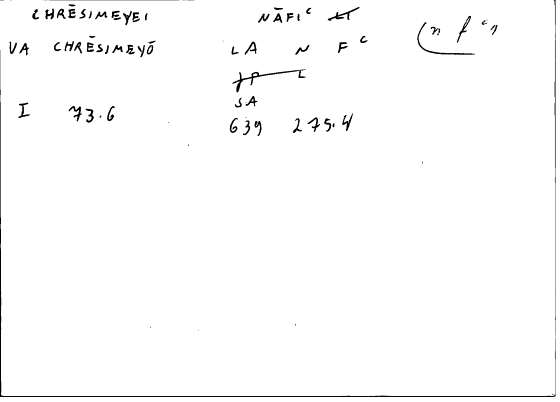 CHRĒSIMEYEI NĀFIᶜ
VA CHRĒSIMEYŌ LA N Fᶜ (n f ᶜn
SA
I 73.6 639 275.4